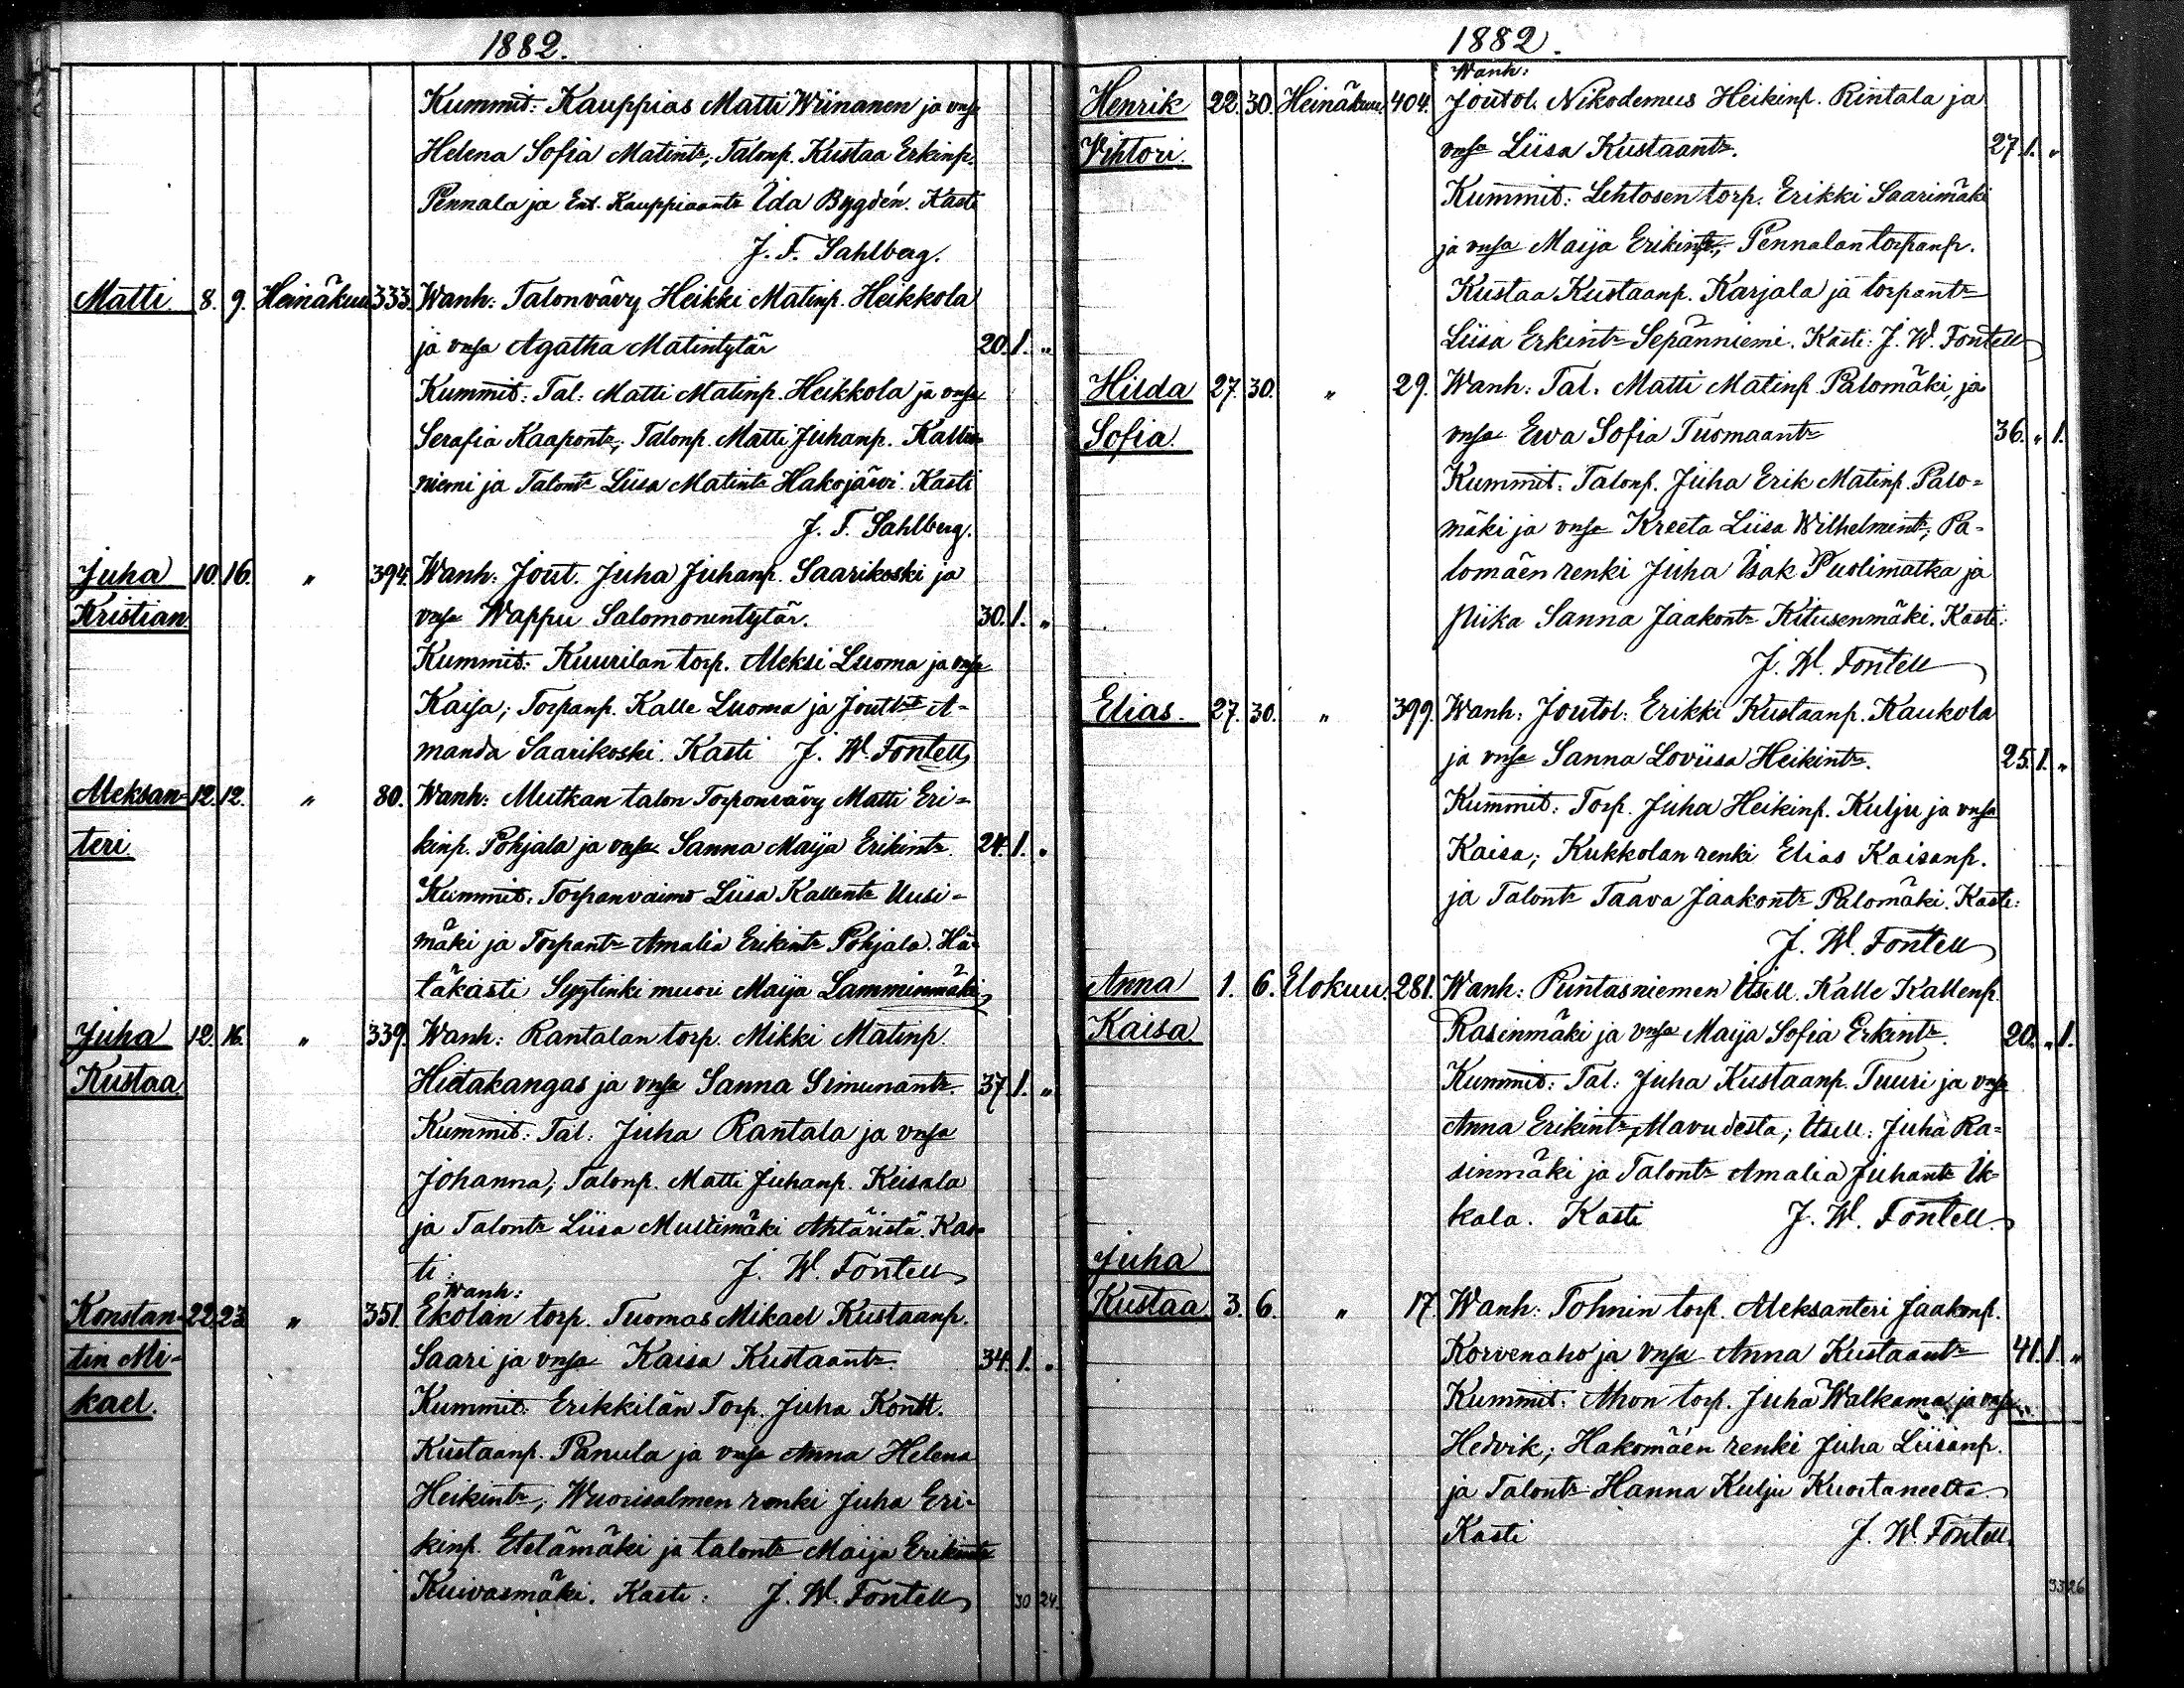 1882.
Kummit: Kauppias Matti Wiinanen ja vnsa
Helena Sofia Matintr, Talonp. Kustaa Erkinp.
Pennala ja Ent. Kauppiaantr Ida Bygdén. Kasti
J. F. Sahlberg.
Matti. 8. 9. Heinäkuu 333. Wanh: Talonvävy Heikki Matinp. Heikkola
ja vnsa Agatha Matintytär 20. 1. "
Kummit: Tal: Matti Matinp. Heikkola ja vnsa
Serafia Kaapontr, Talonp. Matti Juhanp. Kallio
niemi ja Talontr Liisa Matintr Hakojärvi. Kasti
J. F. Sahlberg.
Juha 10. 16. " 394. Wanh: Jout. Juha Juhanp. Saarikoski ja
Kristian. vnsa Wappu Salomonentytär. 30. 1. "
Kummit: Kuurilan torp. Aleksi Luoma ja vnsa
Kaisa; Torpanp. Kalle Luoma ja Jouttr A-
manda Saarikoski. Kasti J. W. Fontell
Aleksan- 12. 12. " 80. Wanh: Mutkan talon Torponvävy Matti Eri-
teri. kinp. Pohjala ja vnsa Sanna Maija Erikintr. 24. 1. "
Kummit: Torpanvaimo Liisa Kallentr Uusi-
mäki ja Torpantr Amalia Erikintr Pohjala. Hä-
täkasti Syytinki muori Maija Lamminmäki
Juha 12. 16. " 339. Wanh: Rantalan torp. Mikki Matinp.
Kustaa. Hietakangas ja vnsa Sanna Simunantr. 37. 1. "
Kummit: Tal: Juha Rantala ja vnsa
Johanna; Talonp. Matti Juhanp. Keisala
ja Talontr Liisa Mustimäki Ahtäristä. Kas-
ti: J. W. Fontell
Wanh:
Konstan- 22. 23. " 351. Ekolan torp. Tuomas Mikael Kustaanp.
tin Mi- Saari ja vnsa Kaisa Kustaantr. 34. 1. "
kael. Kummit: Erikkilän Torp. Juha Kontt.
Kustaanp. Panula ja vnsa Anna Helena
Heikintr, Wuorisalmen renki Juha Eri-
kinp. Etelämäki ja talontr Maija Erikintr
Kuivasmäki. Kasti: J. W. Fontell 30 24
1882.
Wanh:
Henrik 22. 30. Heinäkuu. 404. Joutol. Nikodemus Heikinp. Rintala ja
Vihtori. vnsa Liisa Kustaantr. 27. 1. "
Kummit: Lehtosen torp. Erikki Saarimäki
ja vnsa Maija Erikintr, Pennalan torpanp.
Kustaa Kustaanp. Karjala ja torpantr
Liisa Erkintr Sepänniemi. Kasti: J. W. Fontell
Hilda 27. 30. " 29. Wanh: Tal. Matti Matinp. Palomäki, ja
Sofia. vnsa Ewa Sofia Tuomaantr 36. " 1.
Kummit: Talonp. Juha Erik Matinp. Palo-
mäki ja vnsa Kreeta Liisa Wilhelmintr; Pa-
lomäen renki Juha Isak Puolimatka ja
piika Sanna Jaakontr Kitusenmäki. Kasti:
J. W. Fontell
Elias. 27. 30. " 399. Wanh: Joutol: Erikki Kustaanp. Kaukola
ja vnsa Sanna Loviisa Heikintr. 25. 1. "
Kummit: Torp. Juha Heikinp. Kulju ja vnsa
Kaisa; Kukkolan renki Elias Kaisanp.
ja Talontr Taava Jaakontr Palomäki. Kasti:
J. W. Fontell
Anna 1. 6. Elokuu. 281. Wanh: Puntasniemen Itsell. Kalle Kallenp.
Kaisa Rasinmäki ja vnsa Maija Sofia Erkintr. 20. " 1.
Kummit: Tal: Juha Kustaanp. Tuuri ja vnsa
Anna Erikintr Alavudesta; Itsell: Juha Ra-
sinmäki ja Talontr Amalia Juhantr Ik-
kala. Kasti J. W. Fontell.
Juha
Kustaa. 3. 6. " 17. Wanh: Tohnin torp. Aleksanteri Jaakonp.
Korvenaho ja vnsa Anna Kustaantr 41. 1. "
Kummit: Ahon torp. Juha Walkama ja vnsa
Hedvik; Hakomäen renki Juha Liisanp.
ja Talontr Hanna Kulju Kuortaneelta.
Kasti J. W. Fontell.
33 26